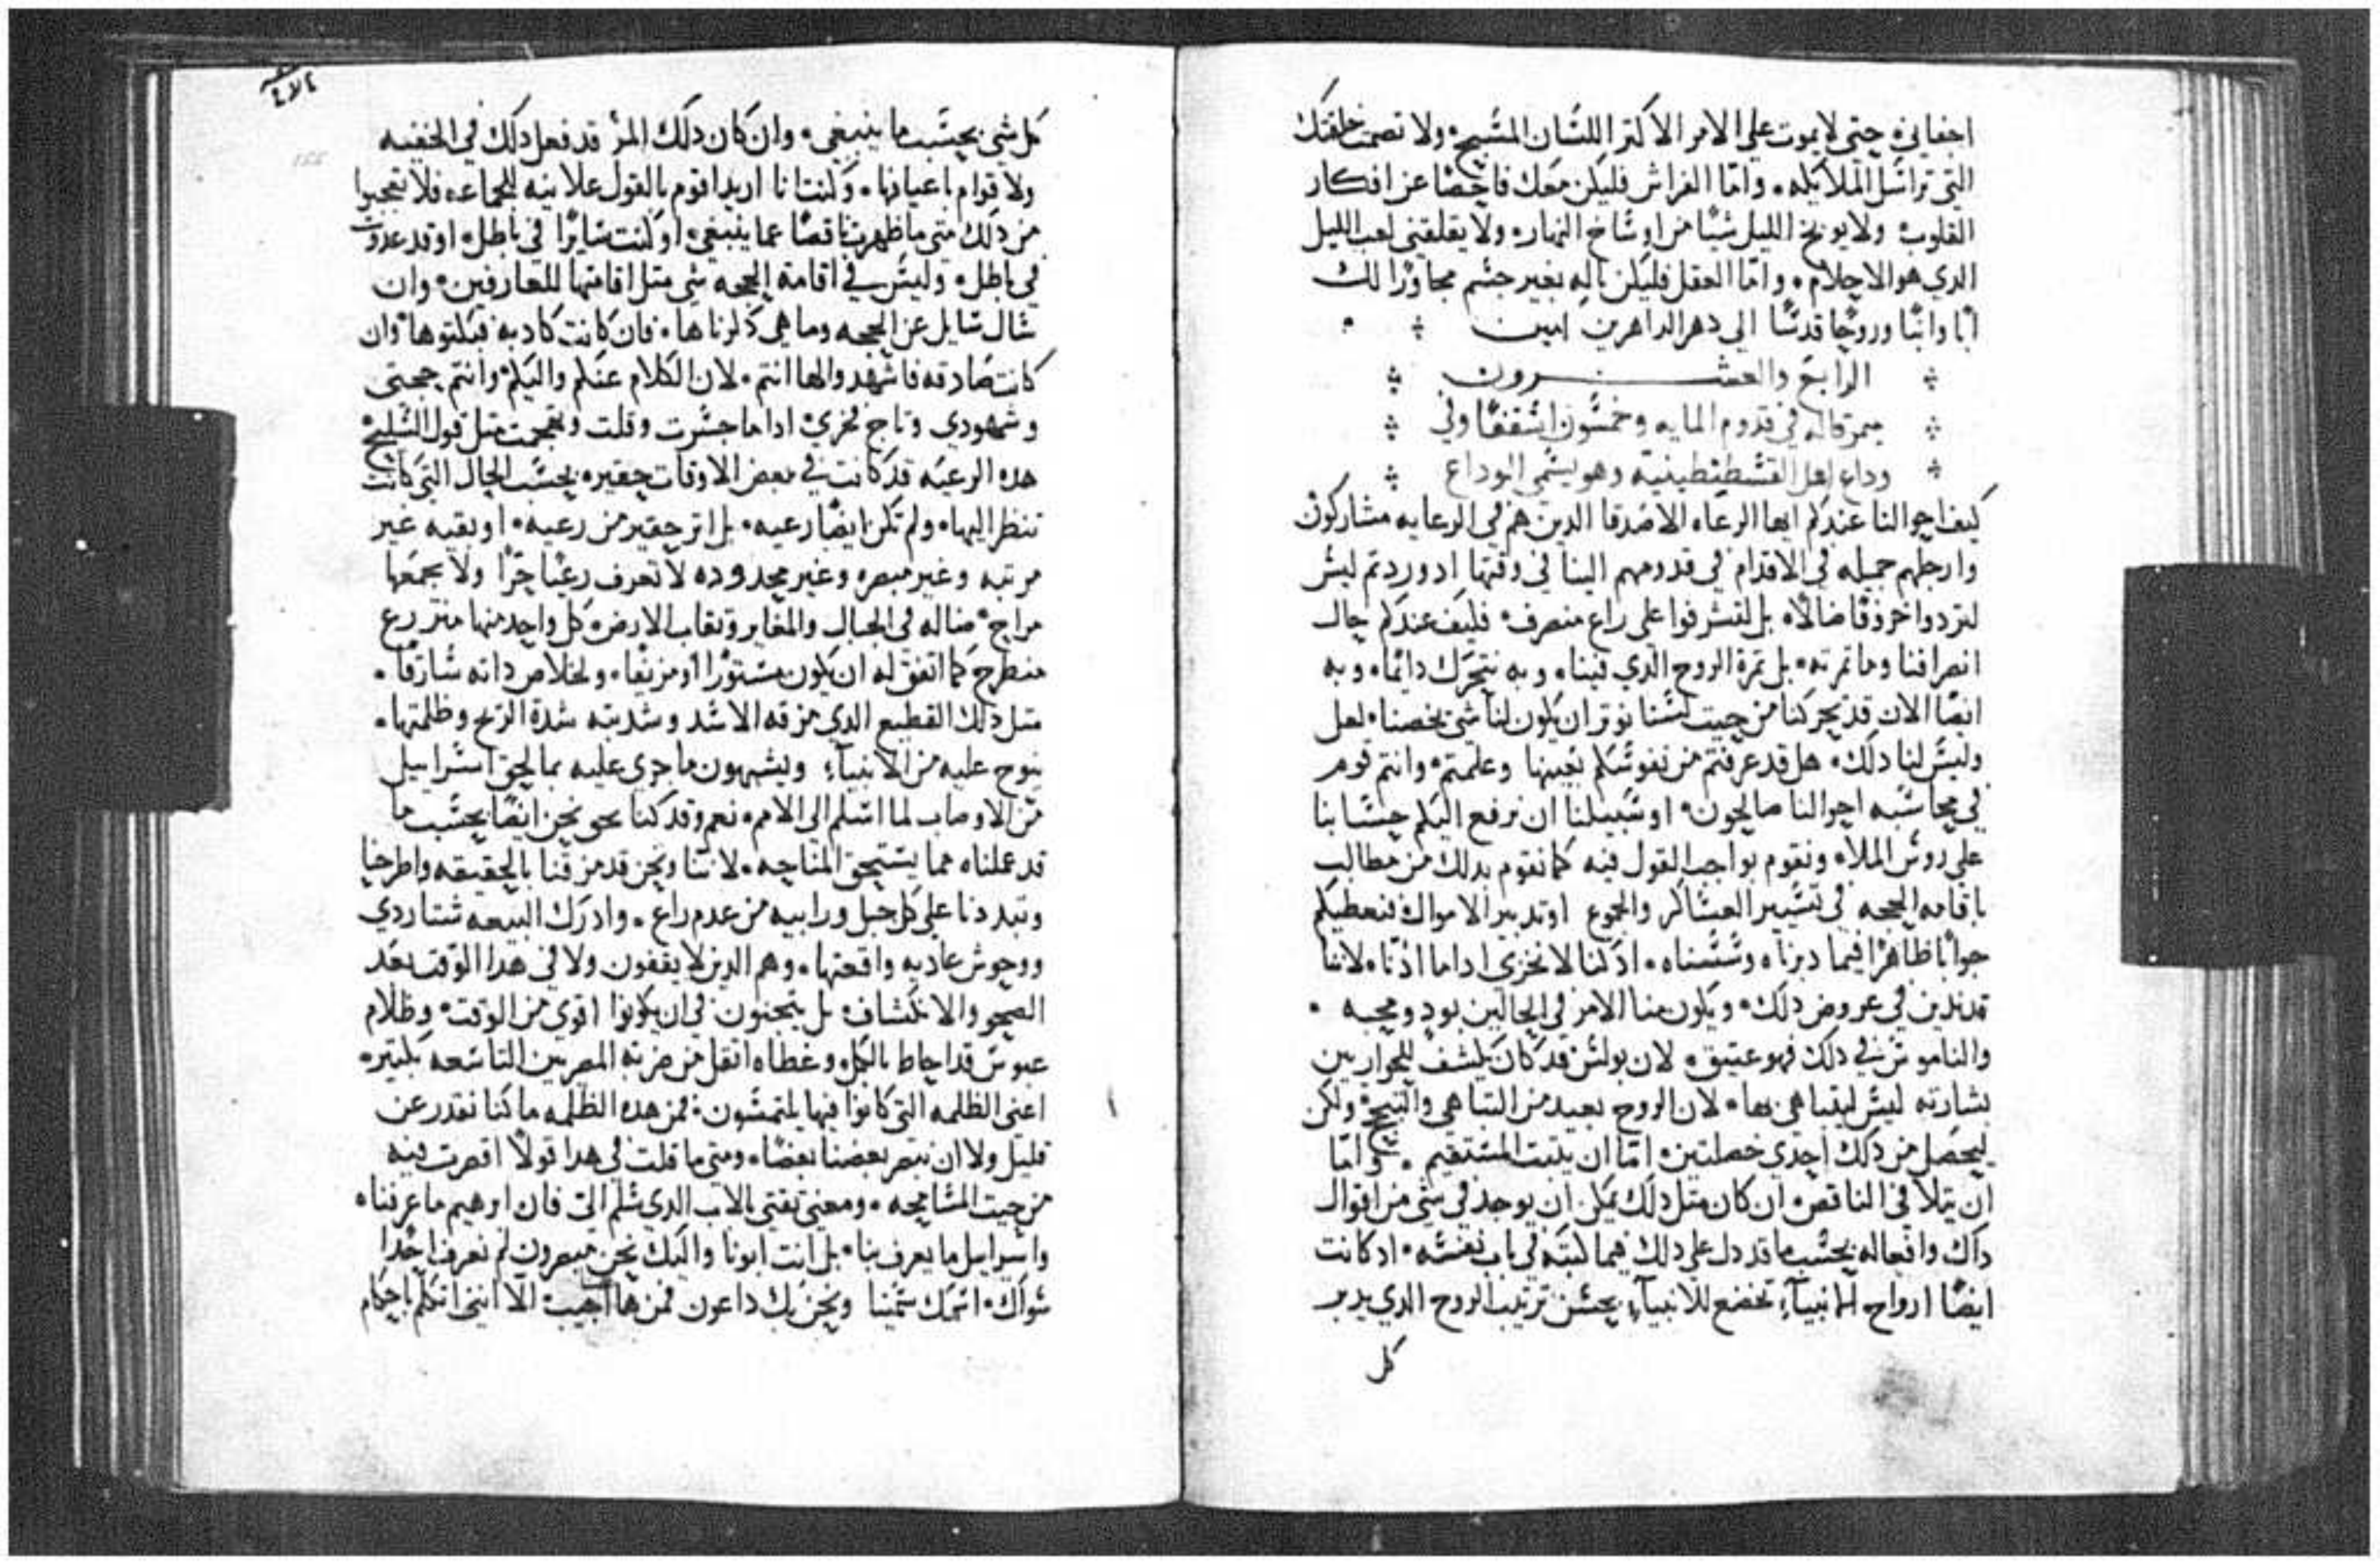 اجفاني، حتى لا يموت على الامر الاكتر اللسان المسبح، ولا تصمت خلقتك
التي تراسل الملايكه، واما الفراش فليكن معك فاحصا عن افكار
القلوب، ولا يوبخ الليل شيا من اوساخ النهار، ولا يقلقني لعب الليل
الدي هو الاحلام، واما العقل فليكن باله بغير جسم مجاورا لك
ابا وابنا وروحا قدسا الى دهر الداهرين امين
الرابع والعشرون
ميمر قاله في قدوم المايه وخمسون اسقفا وفي
وداع اهل القسطنطينيه وهو يسمى الوداع
كيف احوالنا عندكم ايها الرعاه الاصدقا الدين هم في الرعايه مشاركون
وارجلهم جميله في الاقدام في قدومهم الينا في وقتها اد وردتم ليس
لتردوا خروفا ضالا، بل لتشرفوا على راع منصرف، فكيف عندكم حال
انصرافنا وما تمرته، بل تمرة الروح الدي فينا، وبه نتحرك دايما، وبه
ايضا الان قد تحركنا من حيت لسنا نوتر ان يكون لنا شي يخصنا، لعل
وليس لنا دلك، هل قد عرفتم من نفوسكم بعينها وعلمتم، وانتم قوم
في محاسبه احوالنا صالحون، او سبيلنا ان نرفع اليكم حسابنا
على روس الملا، ونقوم بواجب القول فيه كما نقوم بدلك من مطالب
باقامه الحجه في تسيير العساكر والجموع او تدبير الاموال فنعطيكم
جوابا ظاهرا فيما دبرناه وسسناه، اد كنا لا نخزي اداما ادنا، لاننا
قد ندين في عروض دلك، ويكون منا الامر في الحالين بود ومحبه
والناموس في دلك فهو عتيق، لان بولس قد كان يكشف للحواريين
بشارته ليس ليتباهى بها، لان الروح بعيد من التباهي والتبجح، ولكن
ليحصل من دلك احدي خصلتين، اما ان يتبت المستقيم، واما
ان يتلافى الناقص، ان كان متل دلك يمكن ان يوجد في شي من اقوال
داك وافعاله بحسب ما قد دل على دلك فيما كتبه في باب نفسه، اد كانت
ايضا ارواح الانبيآء تخضع للانبيآء بحسن ترتيب الروح الدي يدبر
كل
كل شي بحسب ما ينبغي، وان كان دلك المر قد فعل دلك في الخفيه
ولاقوام باعيانها، وكنت انا اريد اقوم بالقول علانيه للجماعه فلا تعجبوا
من دلك متى ما ظهرت ناقصا عما ينبغي، او كنت سايرا في باطل، او قد عدوت
في باطل، وليس في اقامة الحجه شي متل اقامتها للعارفين، وان
سال سايل عن الحجه وما هي دكرناها، فان كانت كادبه فبكتوها، وان
كانت صادقه فاشهدوا لها انتم، لان الكلام عنكم واليكم وانتم حجتي
وشهودي وتاج فخري، اداما جسرت وقلت وتقحمت متل قول السليح
هده الرعيه قد كانت في بعض الاوقات حقيره بحسب الحال التي كانت
تنظر اليها، ولم تكن ايضا رعيه، بل اتر حقير من رعيه، او بقيه غير
مرتبه وغير مبصره وغير محدوده لا تعرف رعيا حرا ولا يجمعها
مراح، ضاله في الجبال والمغاير وتقاب الارض، كل واحد منها متزرع
منطرح كما اتفق له ان يكون مستورا او مرتفعا، ولخلاص داته سارقا
متل دلك القطيع الدي مزقه الاسد وشدبته شدة الريح وظلمتها
ينوح عليه من الانبيآء ويشبهون ما جري عليه بما لحق اسراييل
من الاوصاب لما اسلم الى الامم، نعم وقد كنا نحن ايضا بحسب ما
قد عملناه مما يستحق المناحه، لاننا ونحن قد مزقنا بالحقيقه واطرحنا
وتبددنا على كل جبل ورابيه من عدم راع، وادرك البيعه شتا ردي
ووحوش عاديه واقعتها، وهم الدين لا يقفون ولا في هدا الوقت بعد
الصحو والانكشاف، بل يتجنون في ان يكونوا اقوي من الوقت، وظلام
عبوس قد احاط بالكل وغطاه اتقل من ضربة المصريين التاسعه بكتير
اعني الظلمه التي كانوا فيها يلتمسون، فمن هده الظلمه ما كنا نقدر عن
قليل ولا ان نبصر بعضنا بعضا، ومتى ما قلت في هدا قولا اقصرت فيه
من حيت المسامحه، ومعي تقتي بالاب الدي سلم الي فان ابرهيم ما عرفنا،
واسراييل ما يعرف بنا، بل انت ابونا واليك نحن مبصرون لم نعرف احدا
سواك، اسمك سمينا ونحن بك داعون فمن هاهنا اجيب الا انني اتكلم باحكام